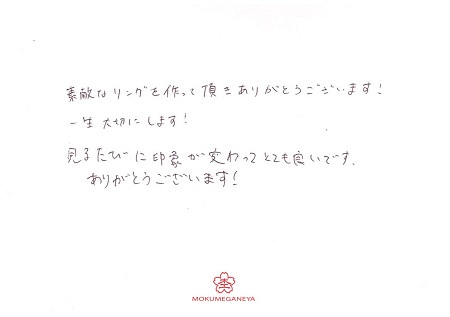 素敵なリングを作って頂きありがとうございます!
一生大切にします!
見るたびに印象が変わってとても良いです.
ありがとうございます!
MOKUMEGANEYA